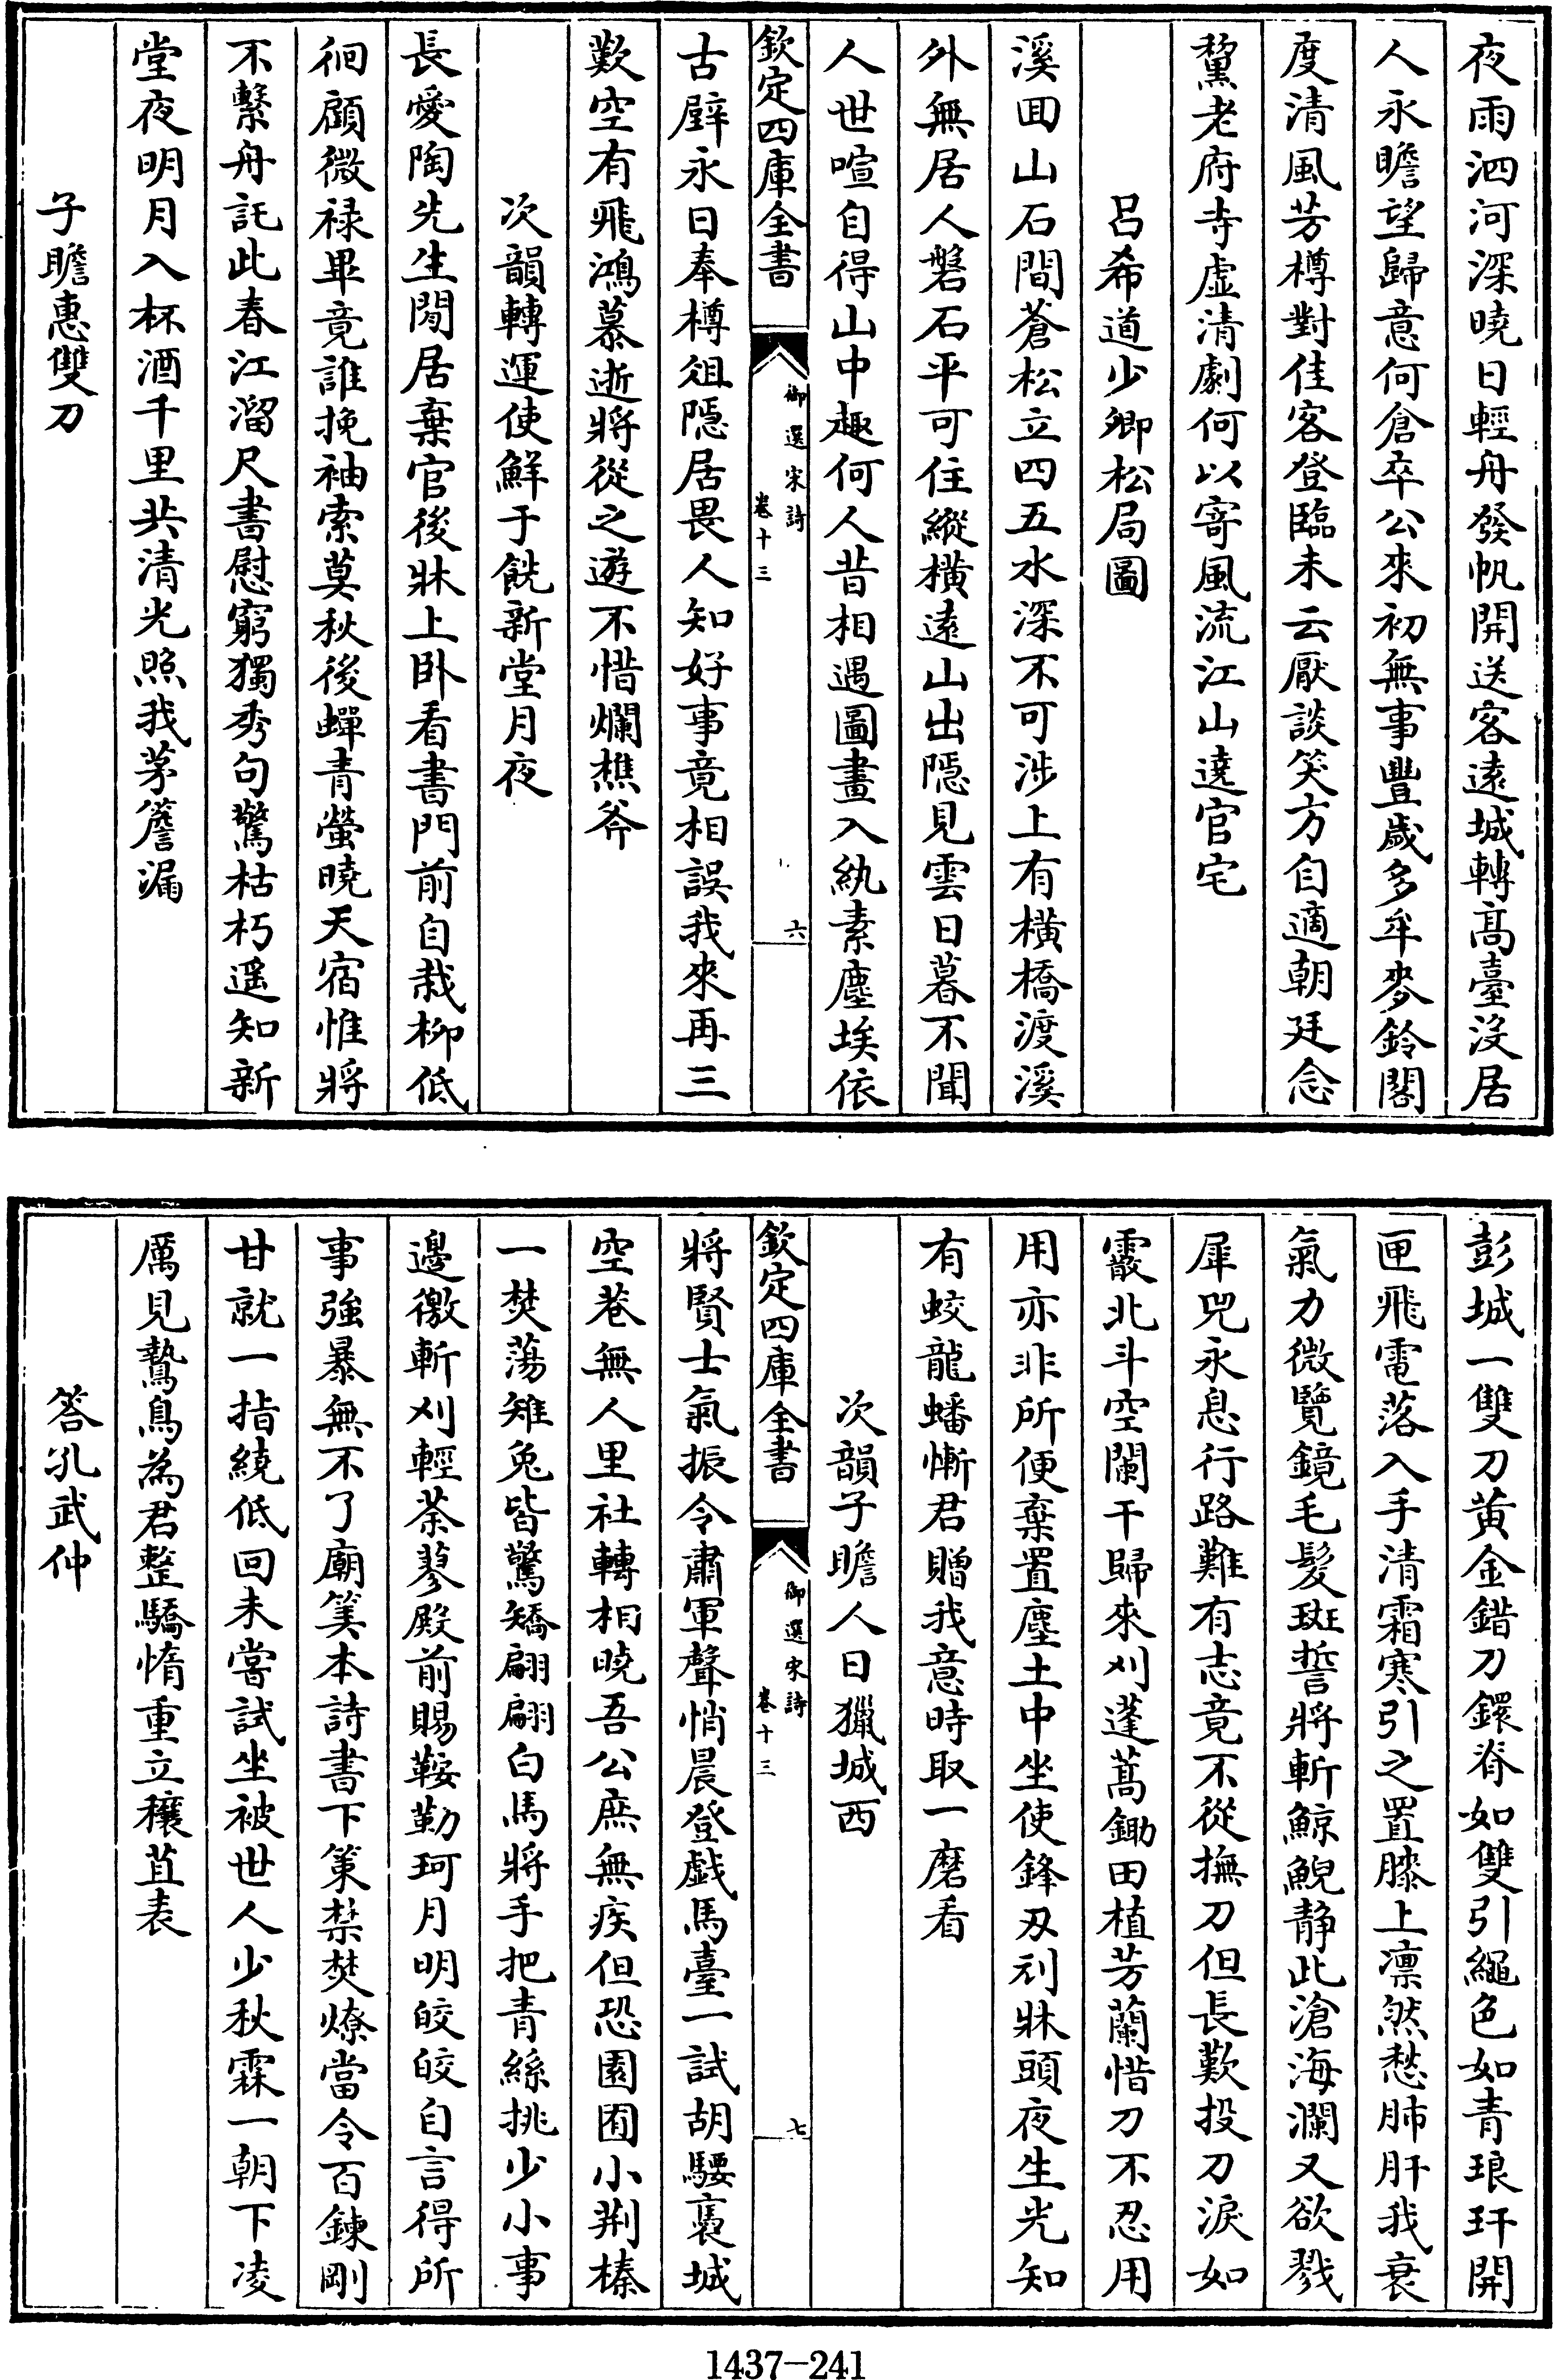 夜雨泗河深曉日輕舟發帆開送客遠城轉高臺沒居
人永瞻望歸意何倉卒公來初無事豐歲多牟麥鈴閣
度清風芳樽對佳客登臨未云厭談笑方自適朝廷念
黧老府寺虛清劇何以寄風流江山遶官宅
呂希道少卿松局圖
溪回山石間蒼松立四五水深不可涉上有橫橋渡溪
外無居人磐石平可住縱橫遠山出隱見雲日暮不聞
人世喧自得山中趣何人昔相遇圖畫入紈素塵埃依
欽定四庫全書
御選宋詩
卷十三
六
古壁永日奉樽俎隱居畏人知好事竟相誤我來再三
歎空有飛鴻慕逝將從之遊不惜爛樵斧
次韻轉運使鮮于侁新堂月夜
長愛陶先生閒居棄官後牀上卧看書門前自栽柳低
徊顧微祿畢竟誰挽袖索莫秋後蟬青螢曉天宿惟將
不繫舟託此春江溜尺書慰窮獨秀句驚枯朽遥知新
堂夜明月入杯酒千里共清光照我茅簷漏
子瞻惠雙刀
彭城一雙刀黃金錯刀鐶脊如雙引繩色如青琅玕開
匣飛電落入手清霜寒引之置膝上凜然愁肺肝我衰
氣力微覽鏡毛髮斑誓將斬鯨鯢静此滄海瀾又欲戮
犀兕永息行路難有志竟不從撫刀但長歎投刀淚如
霰北斗空闌干歸來刈蓬蒿鋤田植芳蘭惜刀不忍用
用亦非所便棄置塵土中坐使鋒刃刓牀頭夜生光知
有蛟龍蟠慚君贈我意時取一磨看
次韻子瞻人日獵城西
欽定四庫全書
御選宋詩
卷十三
七
將賢士氣振令肅軍聲悄晨登戲馬臺一試胡騕褭城
空巷無人里社轉相曉吾公庶無疾但恐園囿小荆榛
一焚蕩雉兔皆驚矯翩翩白馬將手把青絲挑少小事
邊徼斬刈輕荼蓼殿前賜鞍勒珂月明皎皎自言得所
事強暴無不了廟筭本詩書下策禁焚燎當令百鍊剛
甘就一指繞低回未嘗試坐被世人少秋霖一朝下凌
厲見鷙鳥為君整驕惰重立穰苴表
答孔武仲
1437-241